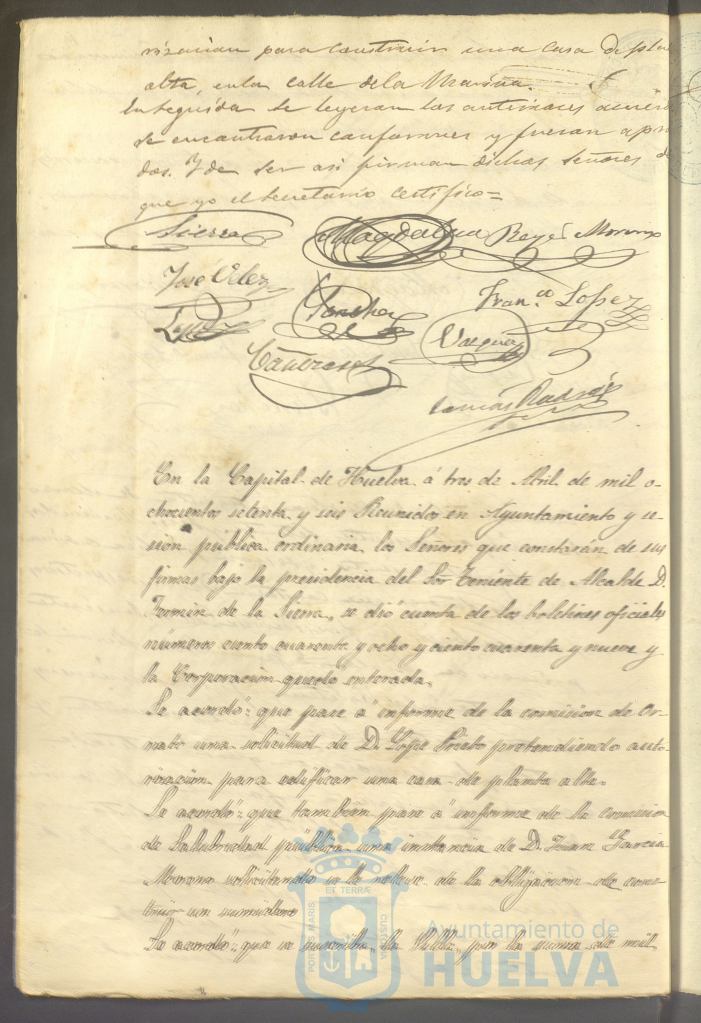 rizacion para construir una casa de pla
alta, en la calle de la Marina.
Enseguida se leyeron las anteriores
se encontraron conformes y fueron apro
dos. Y de ser asi firman dichos Señores de
que yo el Secretario certifico=
Sierra Magdalena Reyes Moreno
José Velez Sanchez Fran.co Lopez
Lopez Vazquez
Contreras
En la Capital de Huelva á tres de Abril de mil o-
chocientos setenta y seis Reunidos en Ayuntamiento y se-
sion pública ordinaria los Señores que constarán de sus
firmas bajo la presidencia del Sor Teniente de Alcalde D.
Fermin de la Sierra, se dió cuenta de los boletines oficiales
números ciento cuarenta y ocho y ciento cuarenta y nueve y
la Corporacion quedó enterada.
Se acordó: que pase a informe de la comision de Or-
nato una solicitud de D. Lope Prieto pretendiendo auto-
rizacion para edificar una casa de planta alta.
Se acordó: que tambien pase a informe de la comision
de Salubridad pública una instancia de D. Juan Garcia
Moreno solicitando se le releve de la obligacion de cons-
truir un sumidero
Se acordó: que se por la suma de mil
PORTUS MARIS ET TERRÆ CUSTODIA
Ayuntamiento de
HUELVA